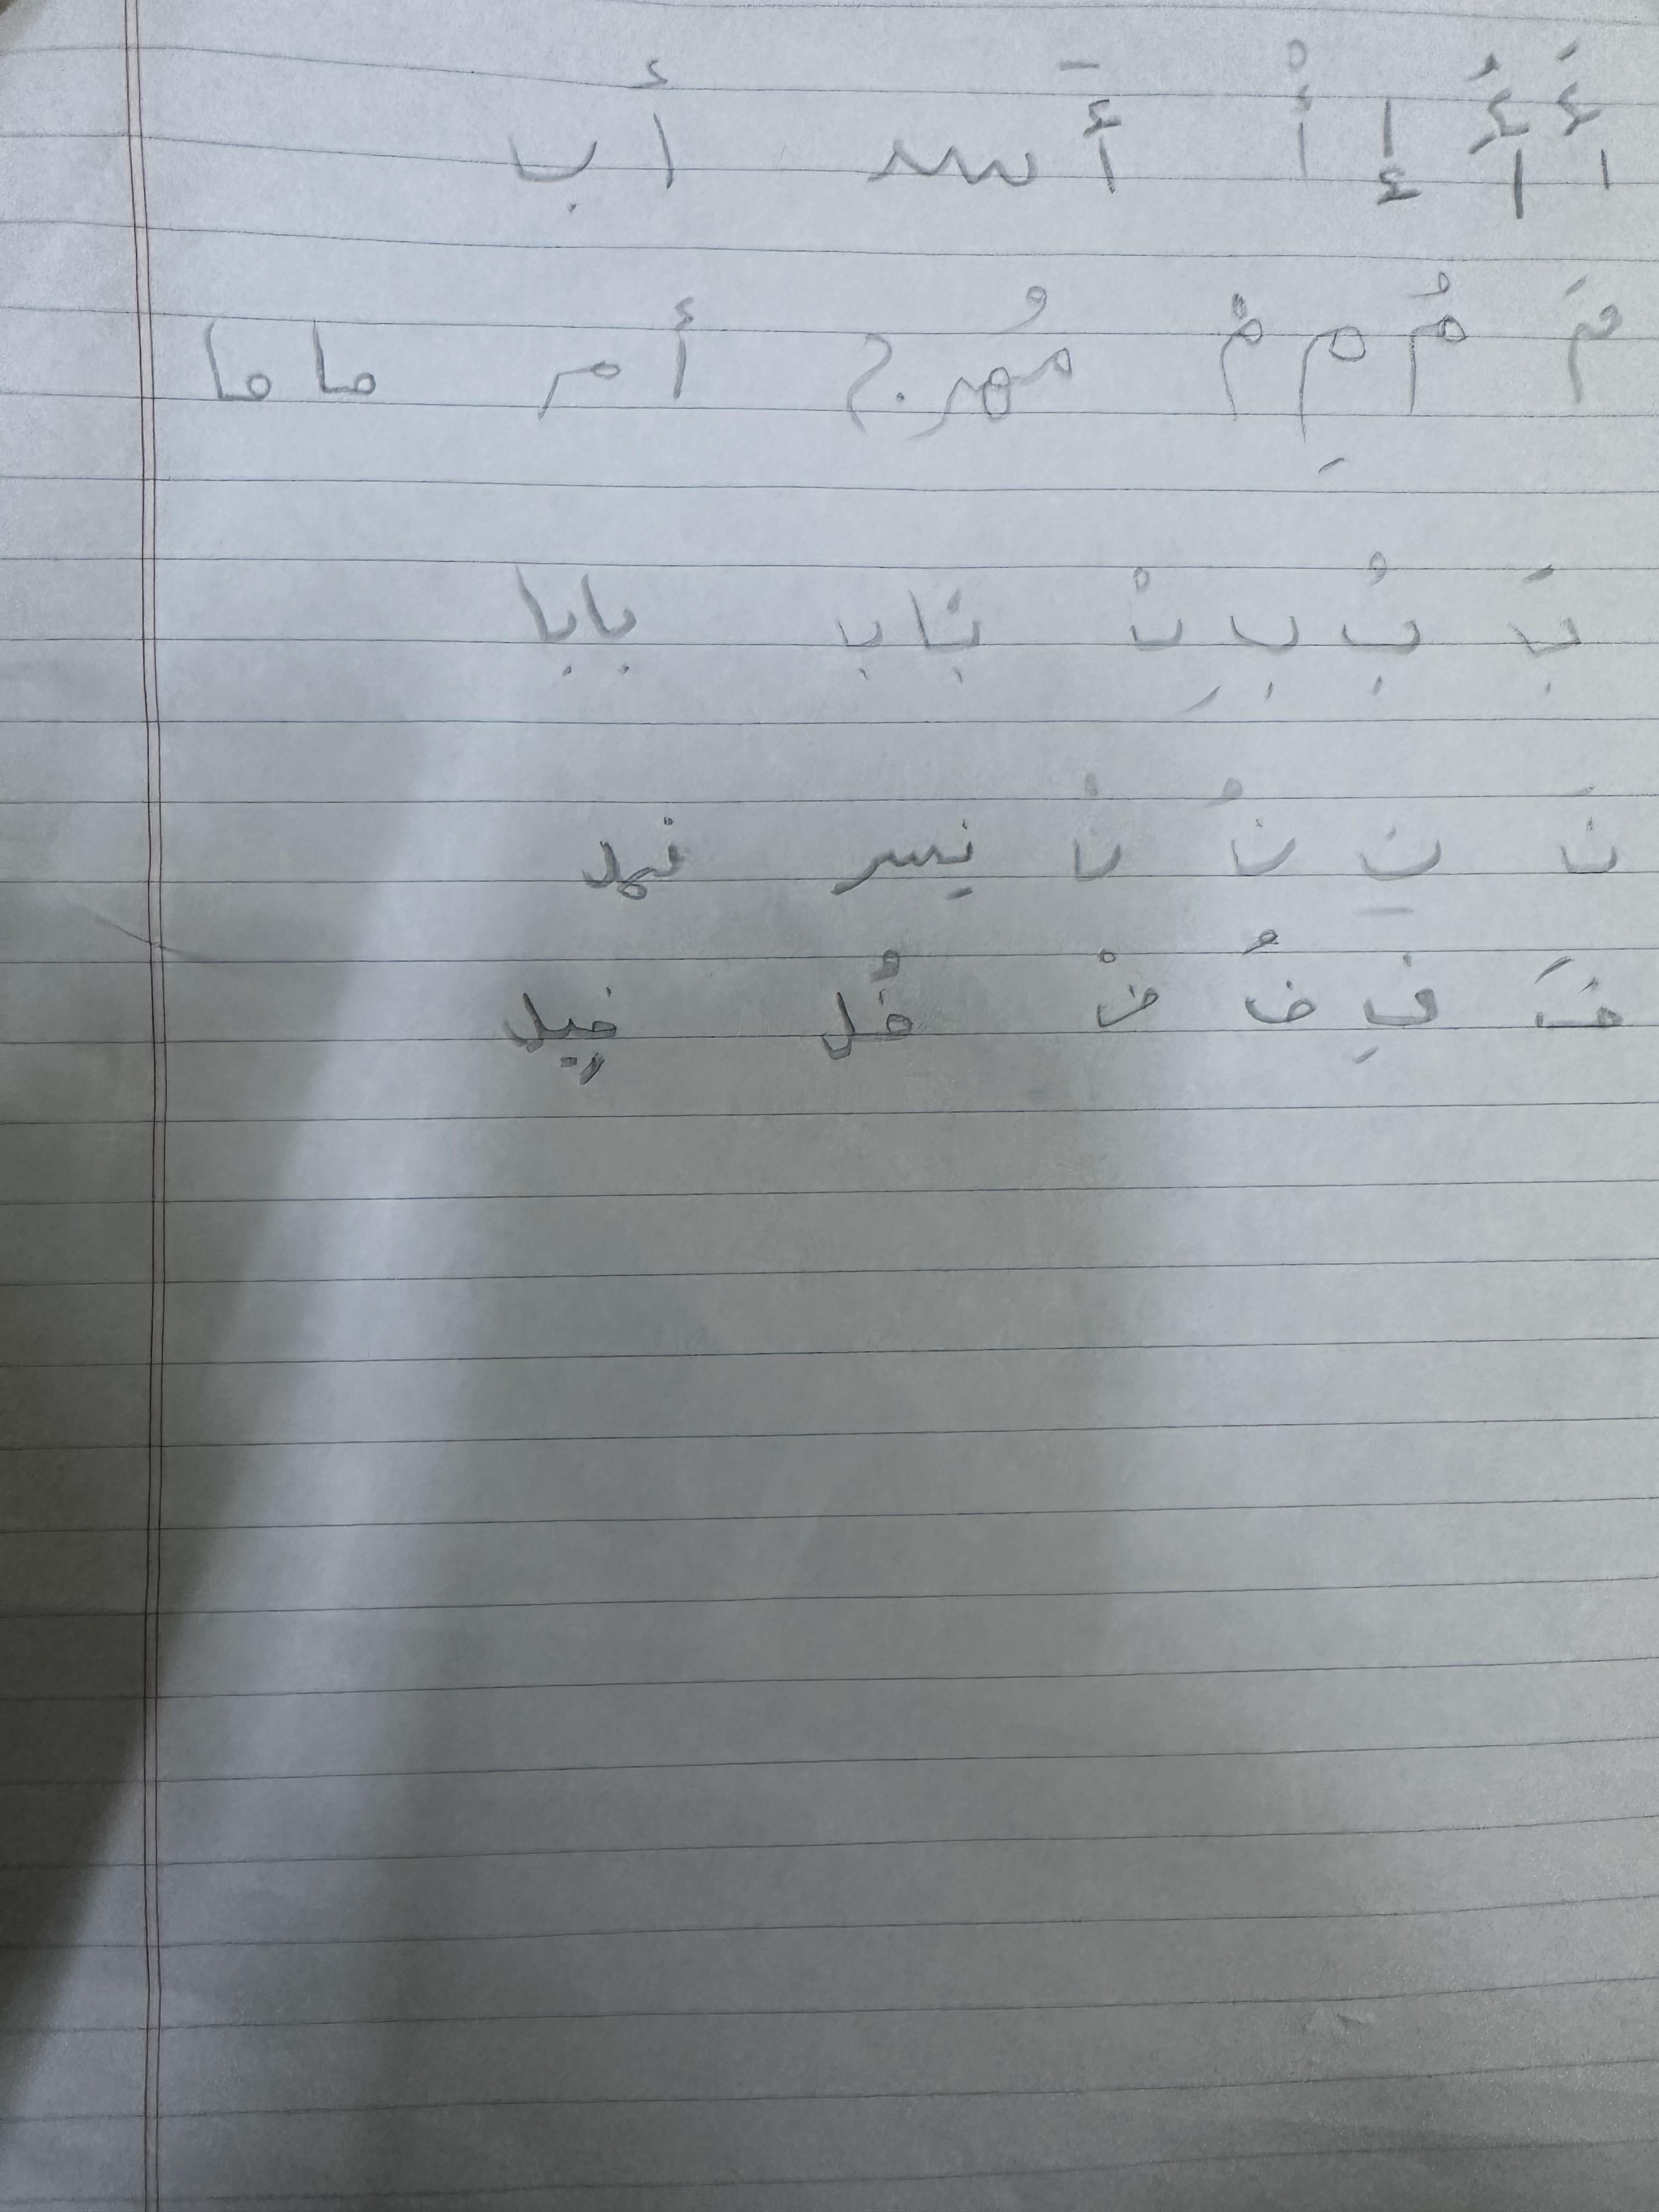 أَ أُ إ أْ أَسد أب
مَ مُ مِ مْ مُهرج أم ماما
بَ بُ بِ بْ بَاب بابا
نَ نِ نُ نْ نسر نهد
فَ فِ فُ فْ فُل فيل